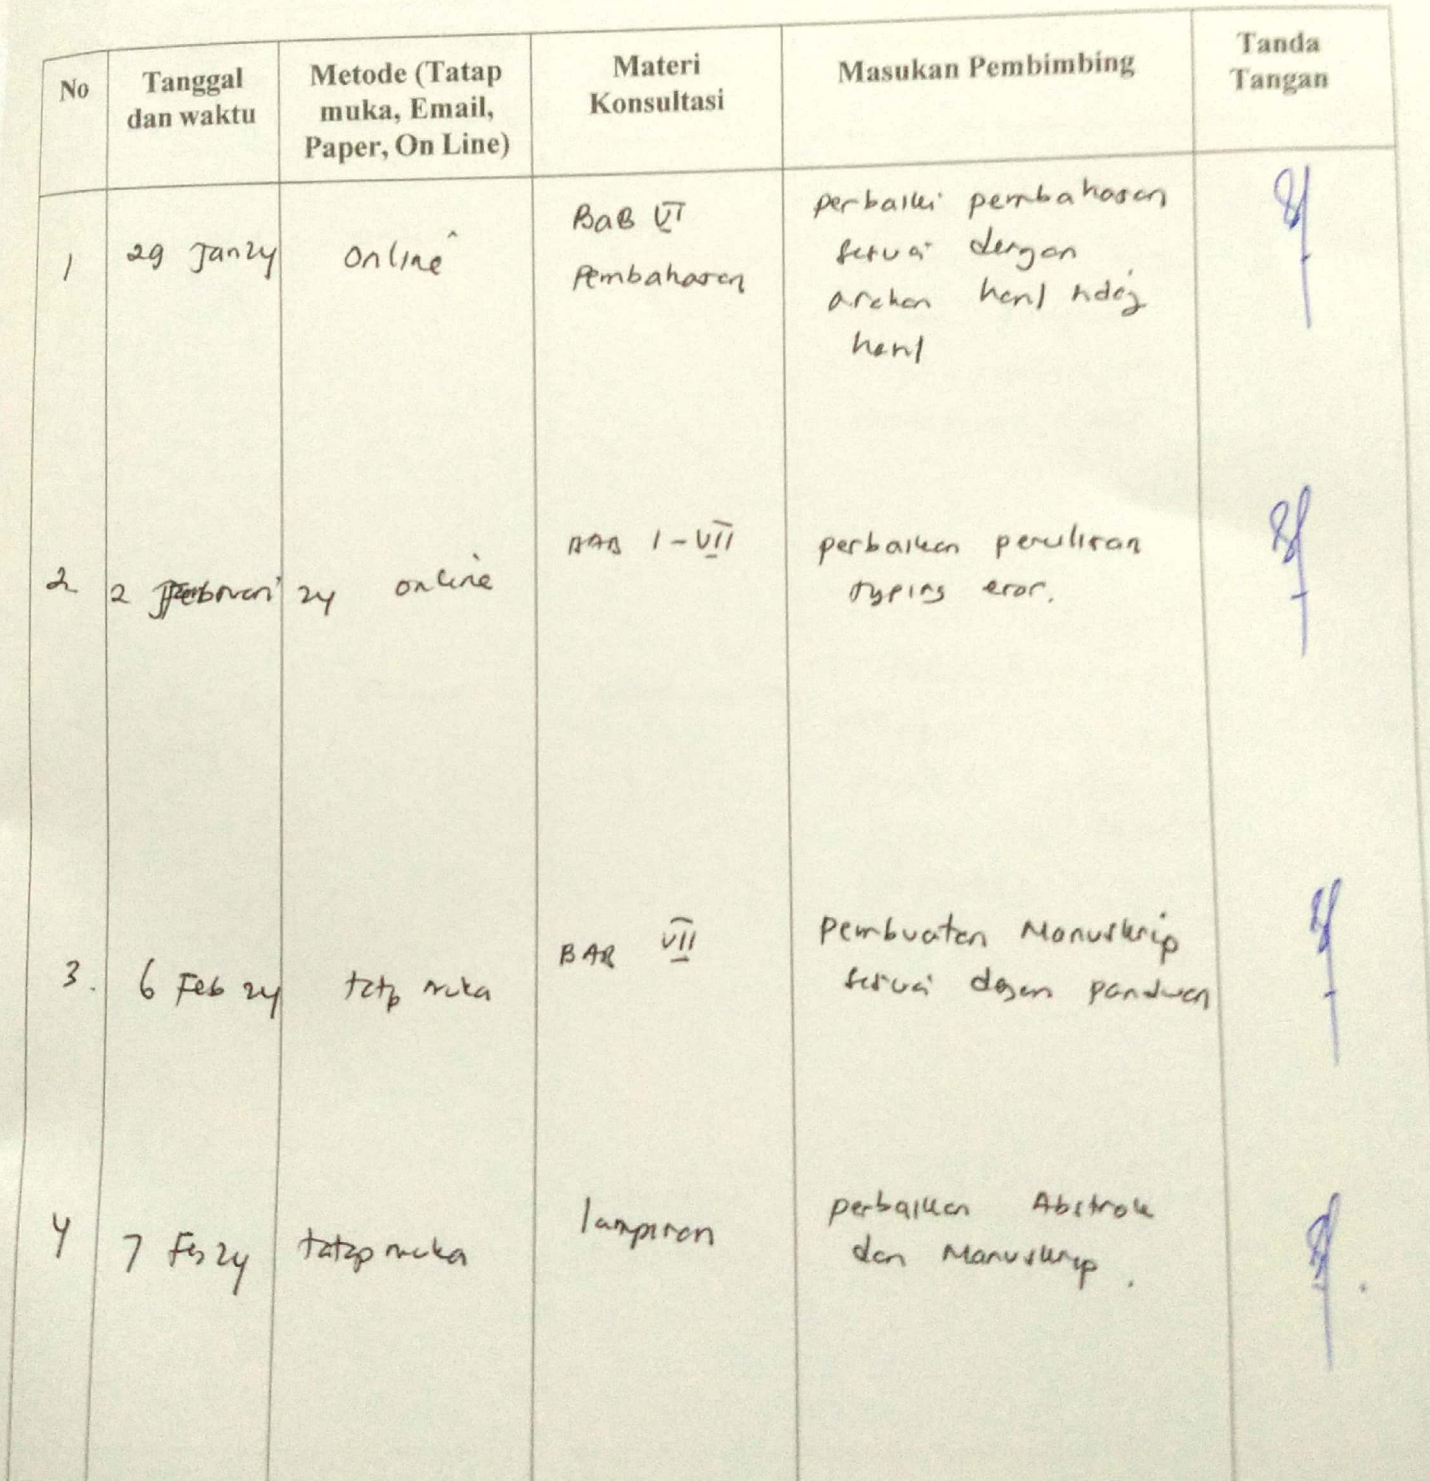 No
Tanggal
dan waktu
Metode (Tatap
muka, Email,
Paper, On Line)
Materi
Konsultasi
Masukan Pembimbing
Tanda
Tangan
1
29 Jan 24
online
BaB VI
Pembahasan
perbaiki pembahasan
sesuai dengan
arahan hasil
hasil
2
2 Februari 24
online
BAB I - VII
perbaikan penulisan
typing eror.
3.
6 Feb 24
tatp muka
BAB VII
Pembuatan Manuskrip
sesuai dengan panduan
4
7 Feb 24
tatap muka
lampiran
perbaikan Abstrak
dan Manuskrip.